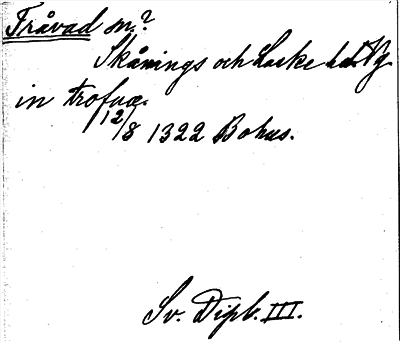 Tråvad sn.?
Skånings och Laske hd Vg.
in trofnæ.
12/8 1322 Bohus.
Sv. Dipl. III.